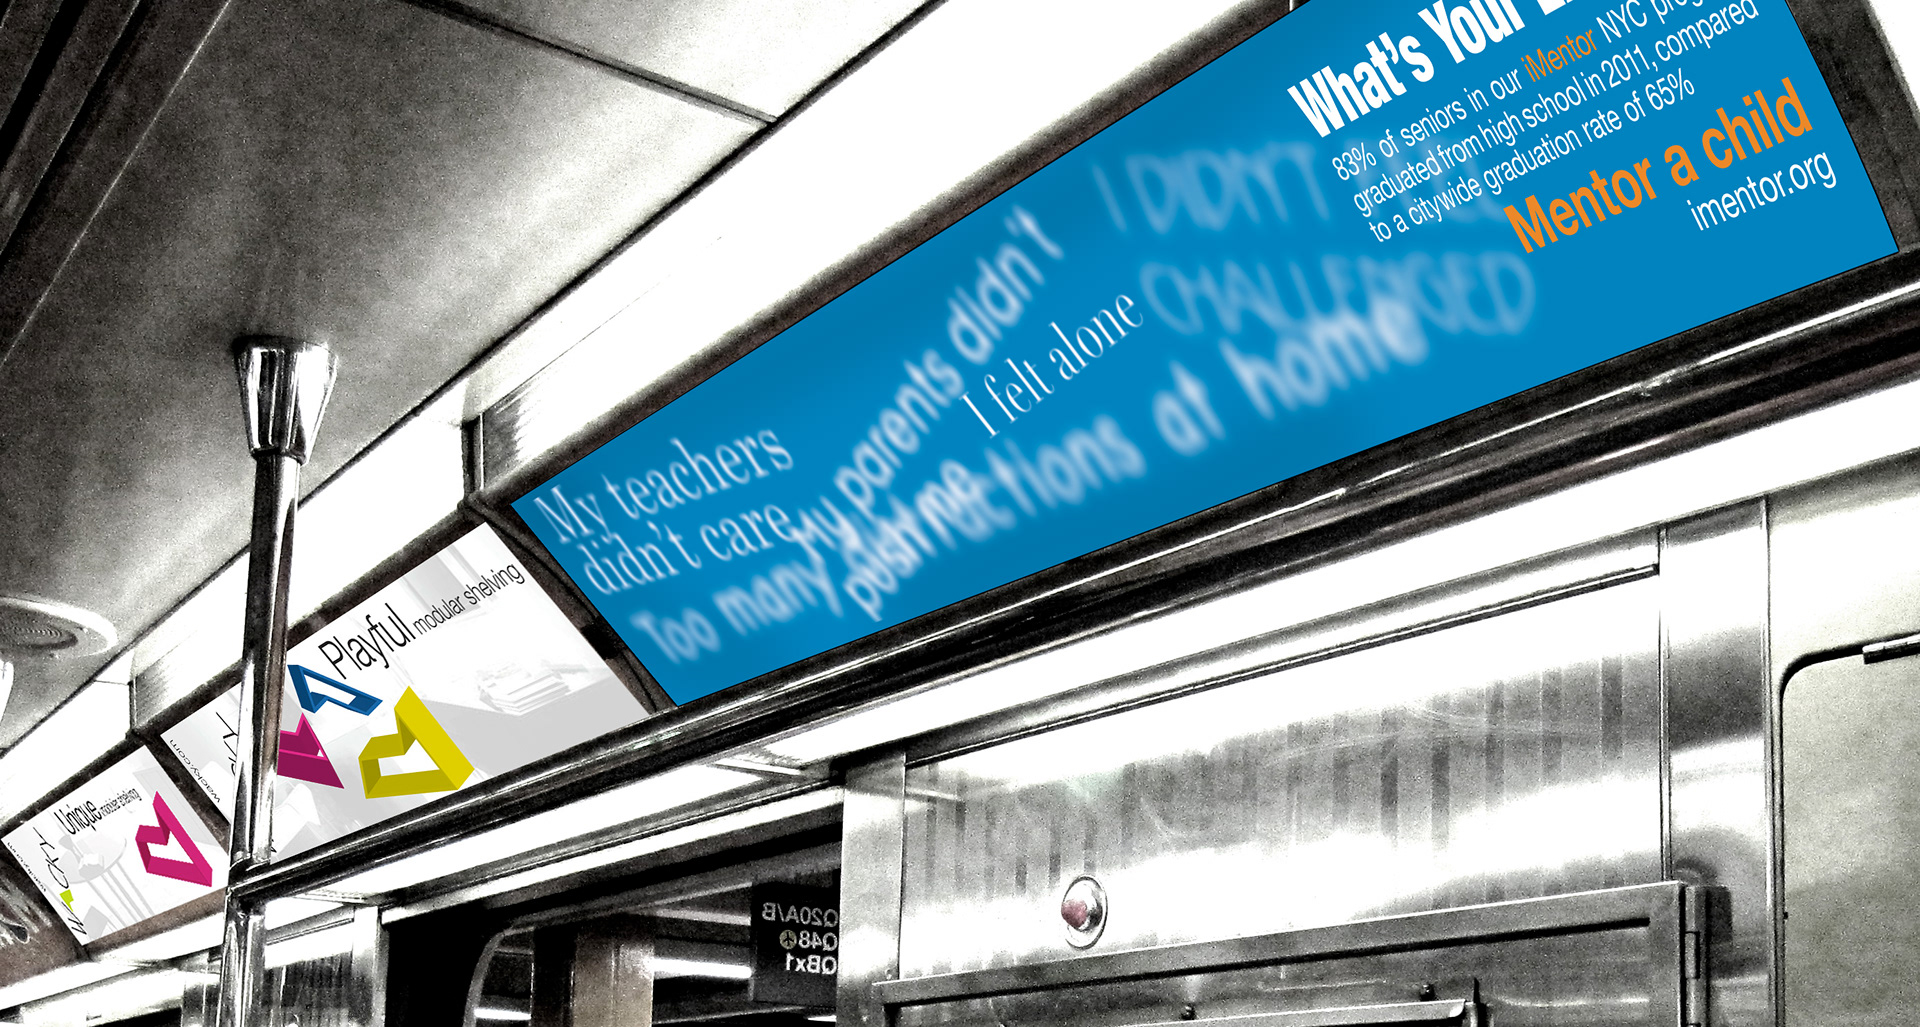 What's Your
83% of seniors in our iMentor NYC
graduated from high school in 2011, compared
to a citywide graduation rate of 65%
Mentor a child
imentor.org
I DIDN'T
CHALLENGED
My teachers
didn't care
My parents didn't
push me
I felt alone
Too many at home
Playful modular shelving
wacky.com
Unique modular shelving
Q20A/B
Q48
QBx1